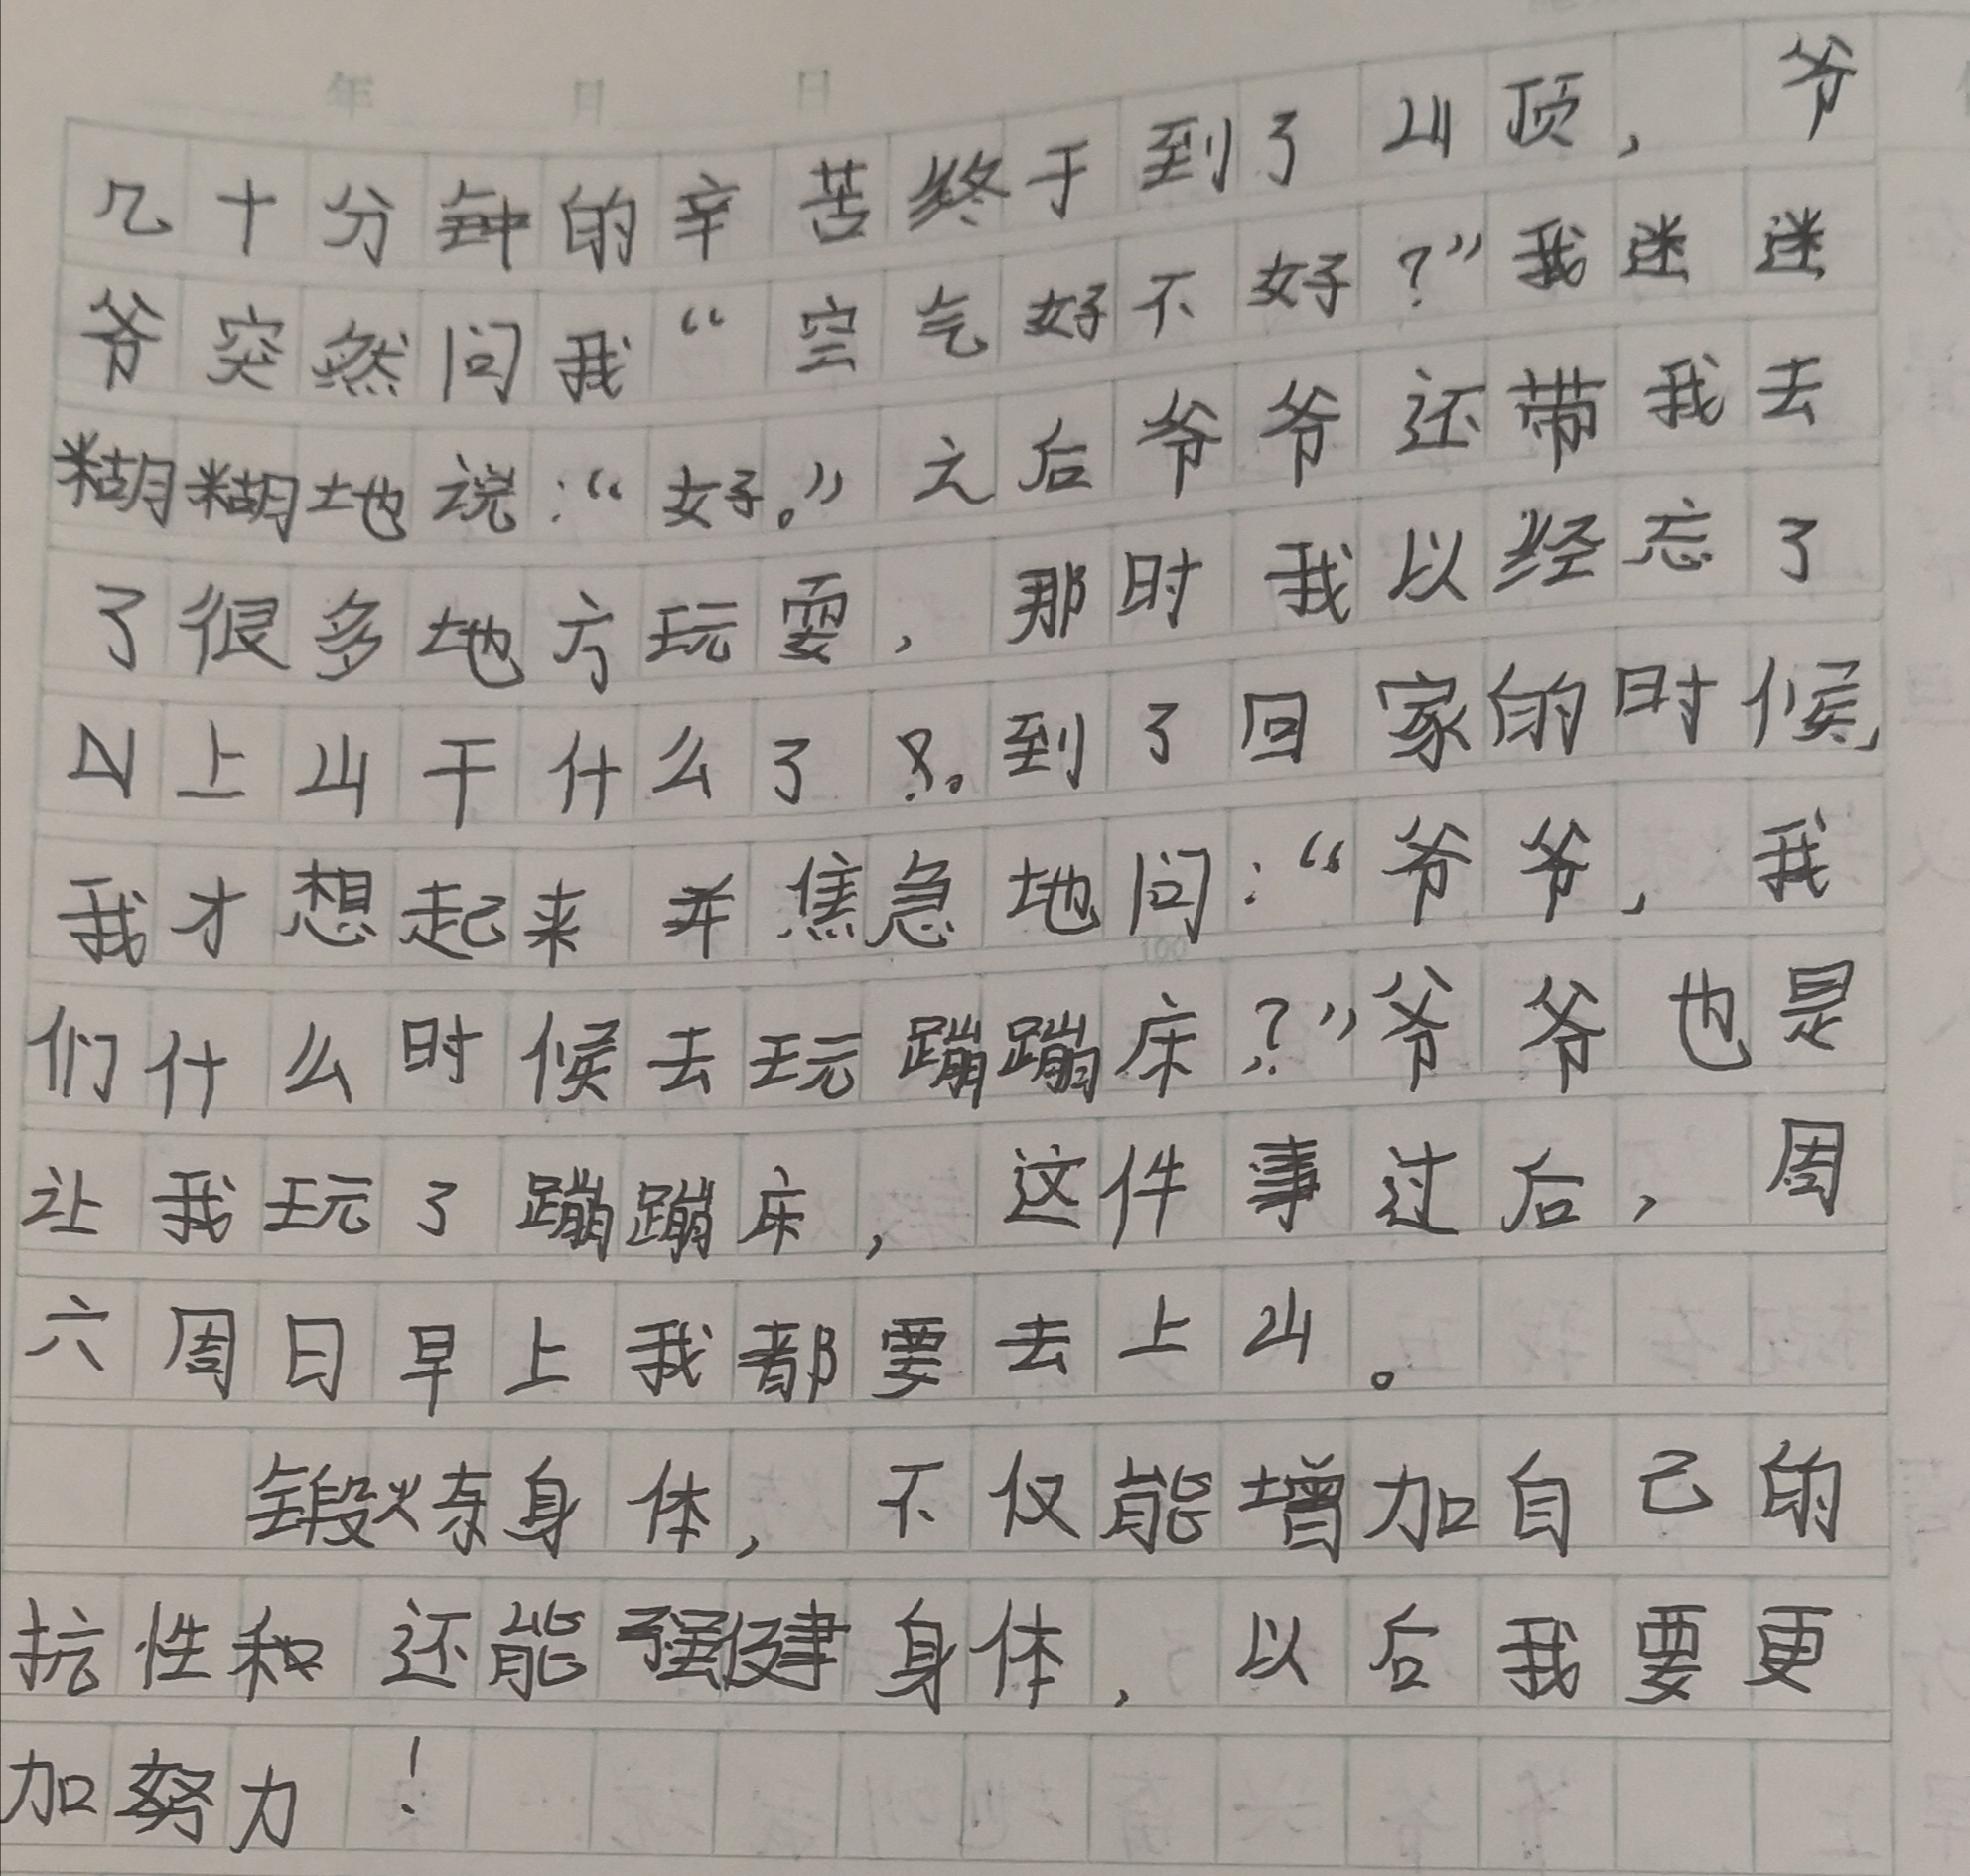 年 月 日
几十分钟的辛苦终于到了山顶，爷
爷突然问我“空气好不好？”我迷迷
糊糊地说：“好。”之后爷爷还带我去
了很多地方玩耍，那时我以经忘了
上山干什么了。到了回家的时候，
我才想起来并焦急地问：“爷爷，我
100
们什么时候去玩蹦蹦床？”爷爷也是
让我玩了蹦蹦床，这件事过后，周
六周日早上我都要去上山。
锻炼身体，不仅能增加自己的
抗性和还能强健身体，以后我要更
加努力！